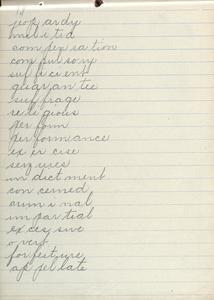 jeop ardy
mer i ted
com pen sa tion
com pul so ry
suf fi ci ent
guar an tee
suf frage
re li gious
per form
per formance
ex er cise
seiz ures
in dict ment
con cerned
crim i nal
im par tial
ex ces sive
o vert
for feit ure
ap pel late